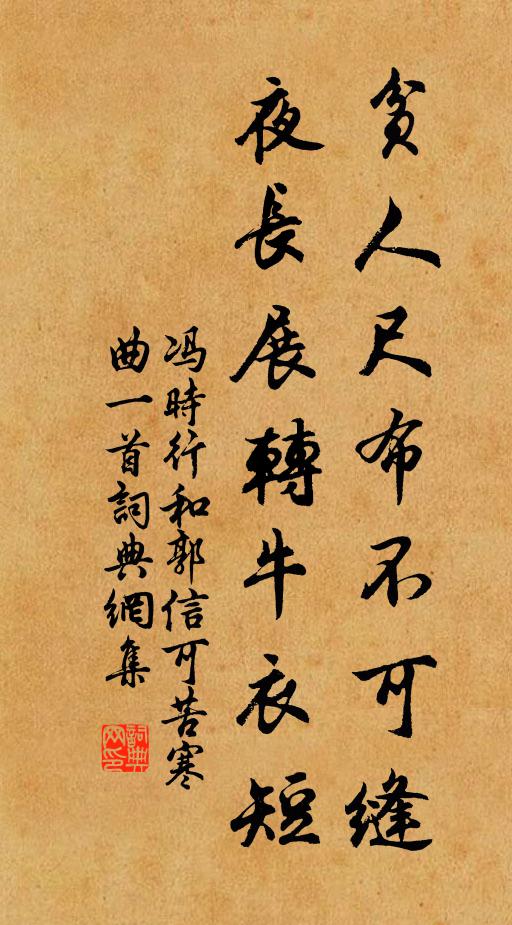 貧人尺布不可縫
夜長展轉牛衣短
冯時行和郭信可苦寒
曲一首詞典網集
詞典
网印